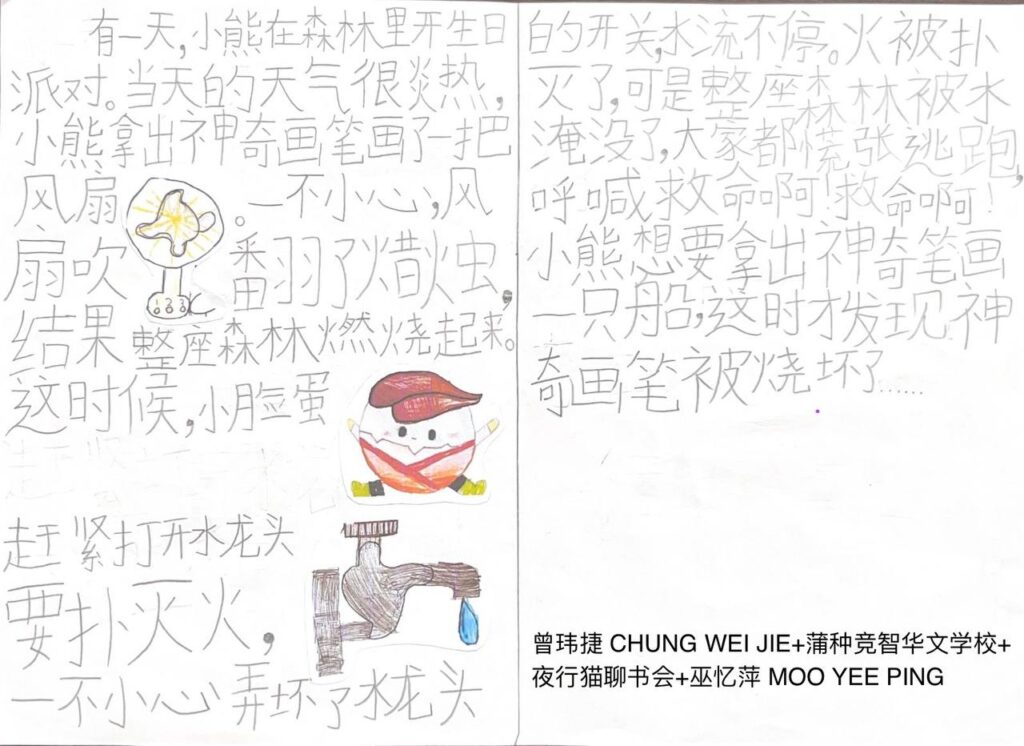 有一天,小熊在森林里开生日
派对。当天的天气很炎热,
小熊拿出神奇画笔画了一把
风扇。一不小心,风
扇吹翻了燭虫,
结果整座森林燃烧起来。
这时候,小脸蛋
赶紧打开水龙头
要扑灭火,
一不小心弄坏了水龙头
的开关,水流不停。火被扑
灭了,可是整座森林被水
淹没了,大家都慌张逃跑,
呼喊救命啊!救命啊!
小熊想要拿出神奇笔画
一只船,这时才发现神
奇画笔被烧坏了……
曾玮捷 CHUNG WEI JIE+蒲种竞智华文学校+
夜行猫聊书会+巫忆萍 MOO YEE PING